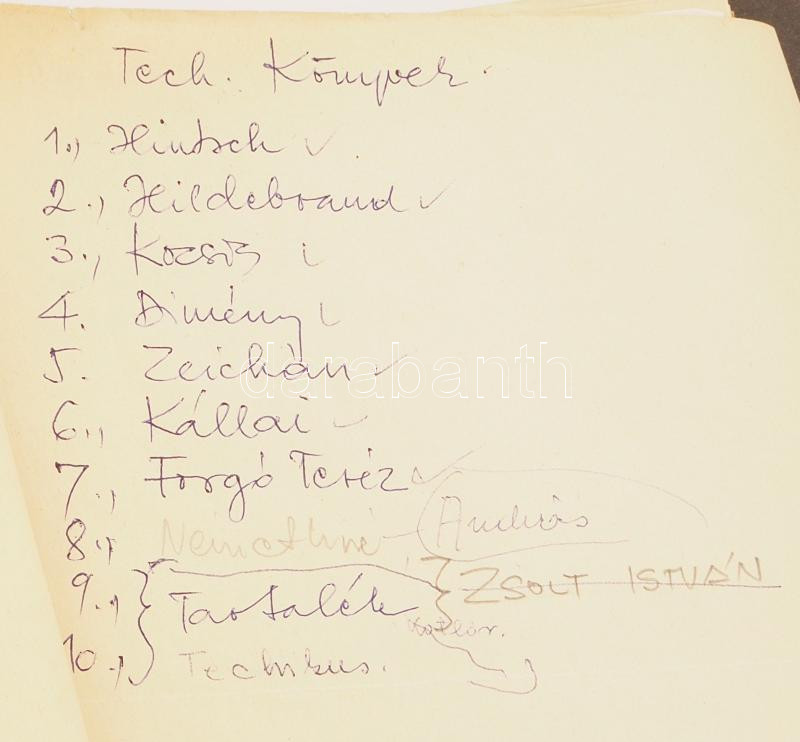 Tech. Könyvek.
1., Hintsch ✓
2., Hildebrand ✓
3., Kocsis
4. Dimény
5. Zeichán ✓
6., Kállai ✓
7., Forgó Teréz ✓
8., Némethné András
9., Tartalék ZSOLT ISTVÁN
10., Technikus.
darabanth